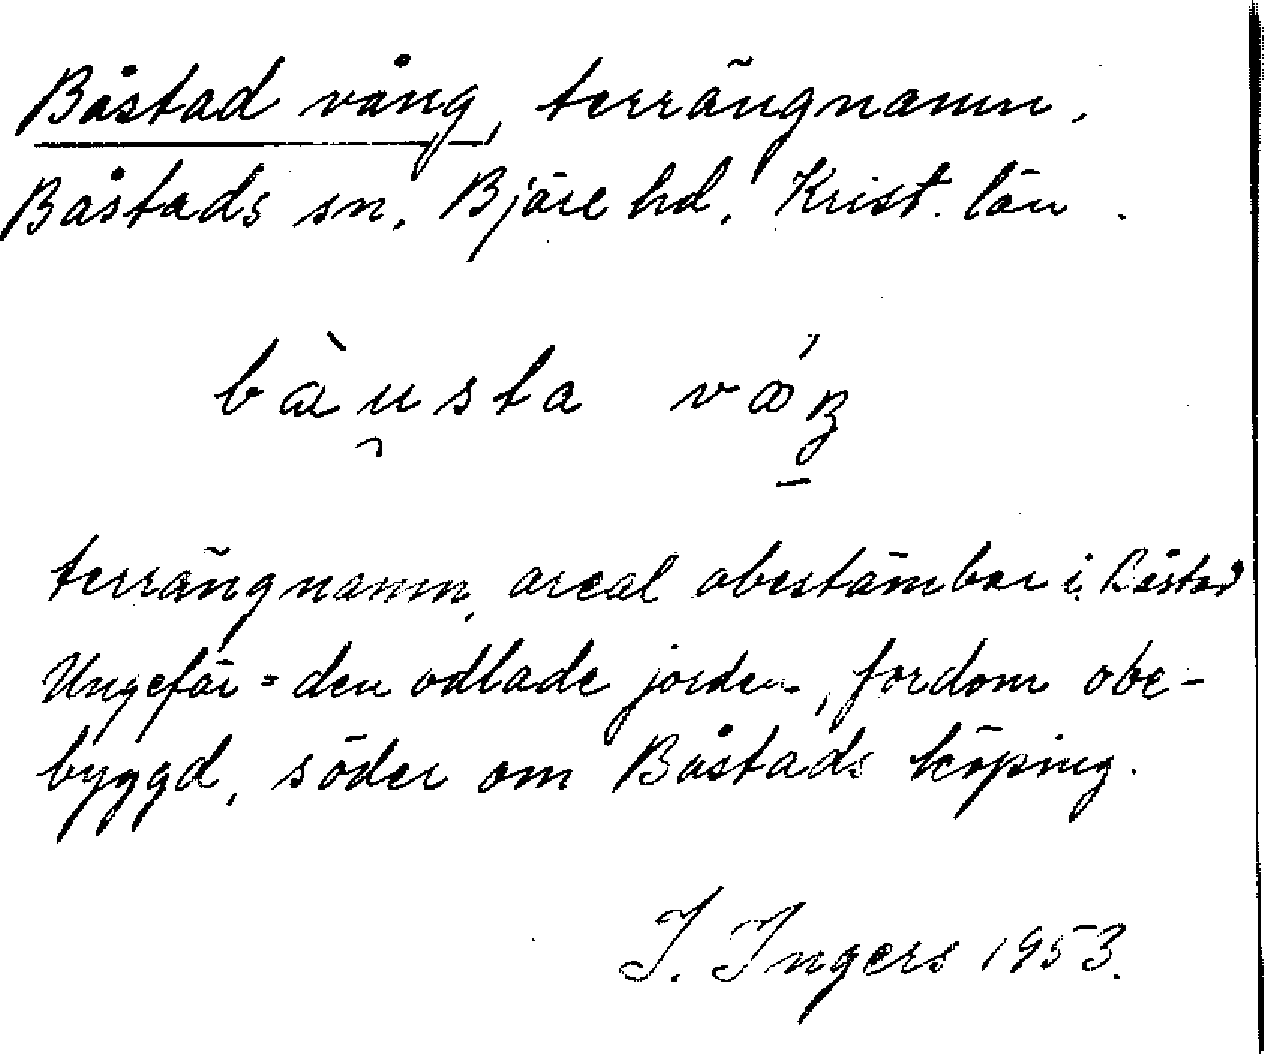 Båstad vång, terrängnamn.
Båstads sn. Bjäre hd. Krist. län.
terrängnamn, areal obestämbar i Båstad
Ungefär = den odlade jorden, fordom obe-
byggd, söder om Båstads köping.
I. Ingers 1953.